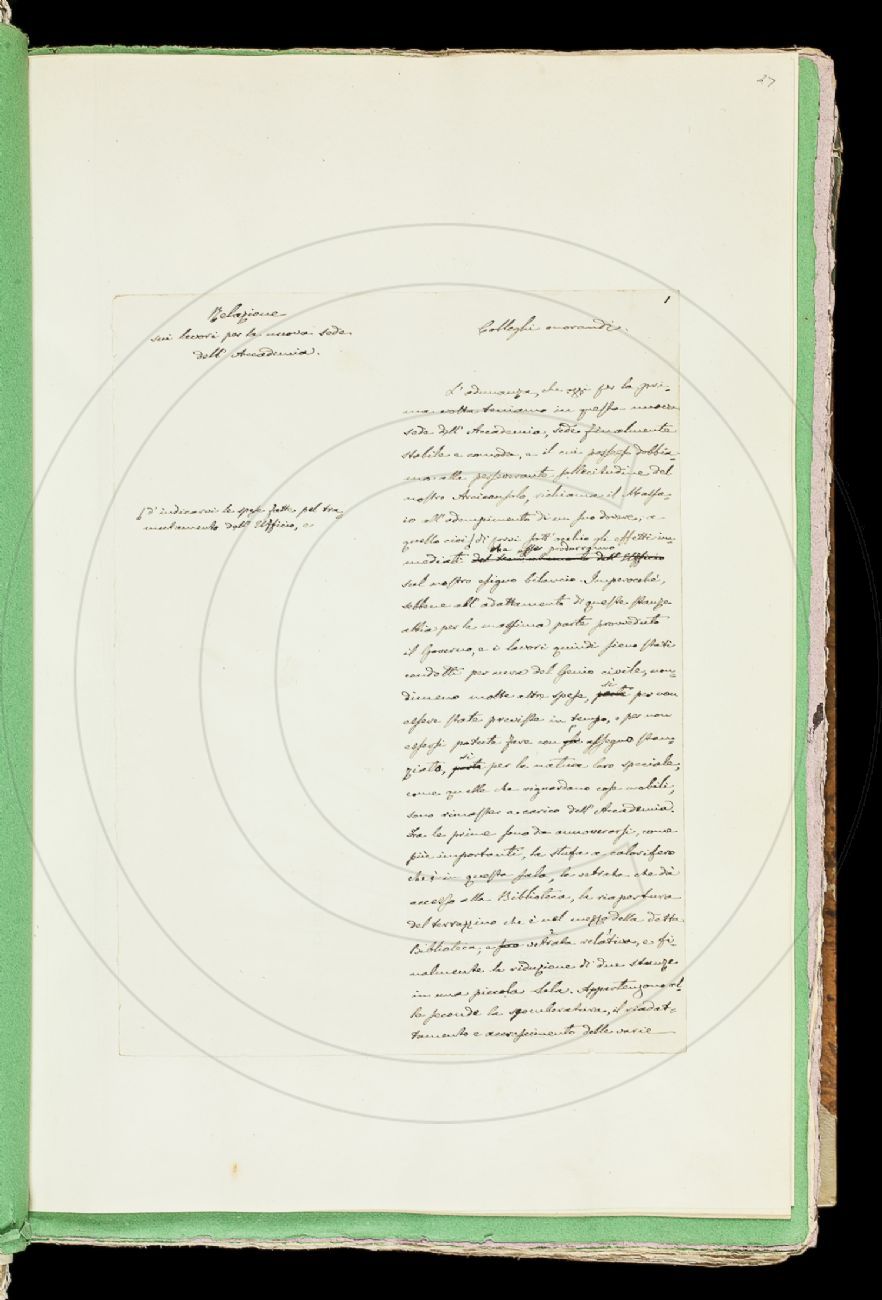 27
1
Relazione
sui lavori per la nuova sede
dell' Accademia.
Colleghi onorandi.
L'adunanza, che oggi per la pri-
ma volta teniamo in questa nuova
sede dell' Accademia, sede finalmente
stabile e comoda, e il cui possesso dobbia-
mo alla perseverante sollecitudine del
nostro Arciconsolo, richiama il Massa-
io all' adempimento di un suo dovere, e
quello cioè di porvi sott' occhio gli effetti im-
che essi produrranno
mediati del tramutamento dell' Uffizio
sul nostro esiguo bilancio. Imperocchè,
sebbene all' adattamento di queste stanze
abbia per la massima parte provveduto
il Governo, e i lavori quindi sieno stati
condotti per cura del Genio civile, non-
dimeno molte altre spese, si per non
essere state previste in tempo, o per non
essersi potute fare con assegno stan-
ziato, si per la natura loro speciale,
come quelle che riguardano cose mobili,
sono rimaste a carico dell' Accademia.
Tra le prime sono da annoverarsi, come
più importanti, la stufa a calorifero
che è in questa sala, la vetrata che dà
accesso alla Biblioteca, la riapertura
del terrazzino che è nel mezzo della detta
Biblioteca, e vetrata relativa, e fi-
nalmente la riduzione di due stanze
in una piccola Sala. Appartengono al-
le seconde la sgomberatura, il riadat-
tamento e accrescimento delle varie
d'indicarvi le spese fatte pel tra-
mutamento dell' Uffizio, e